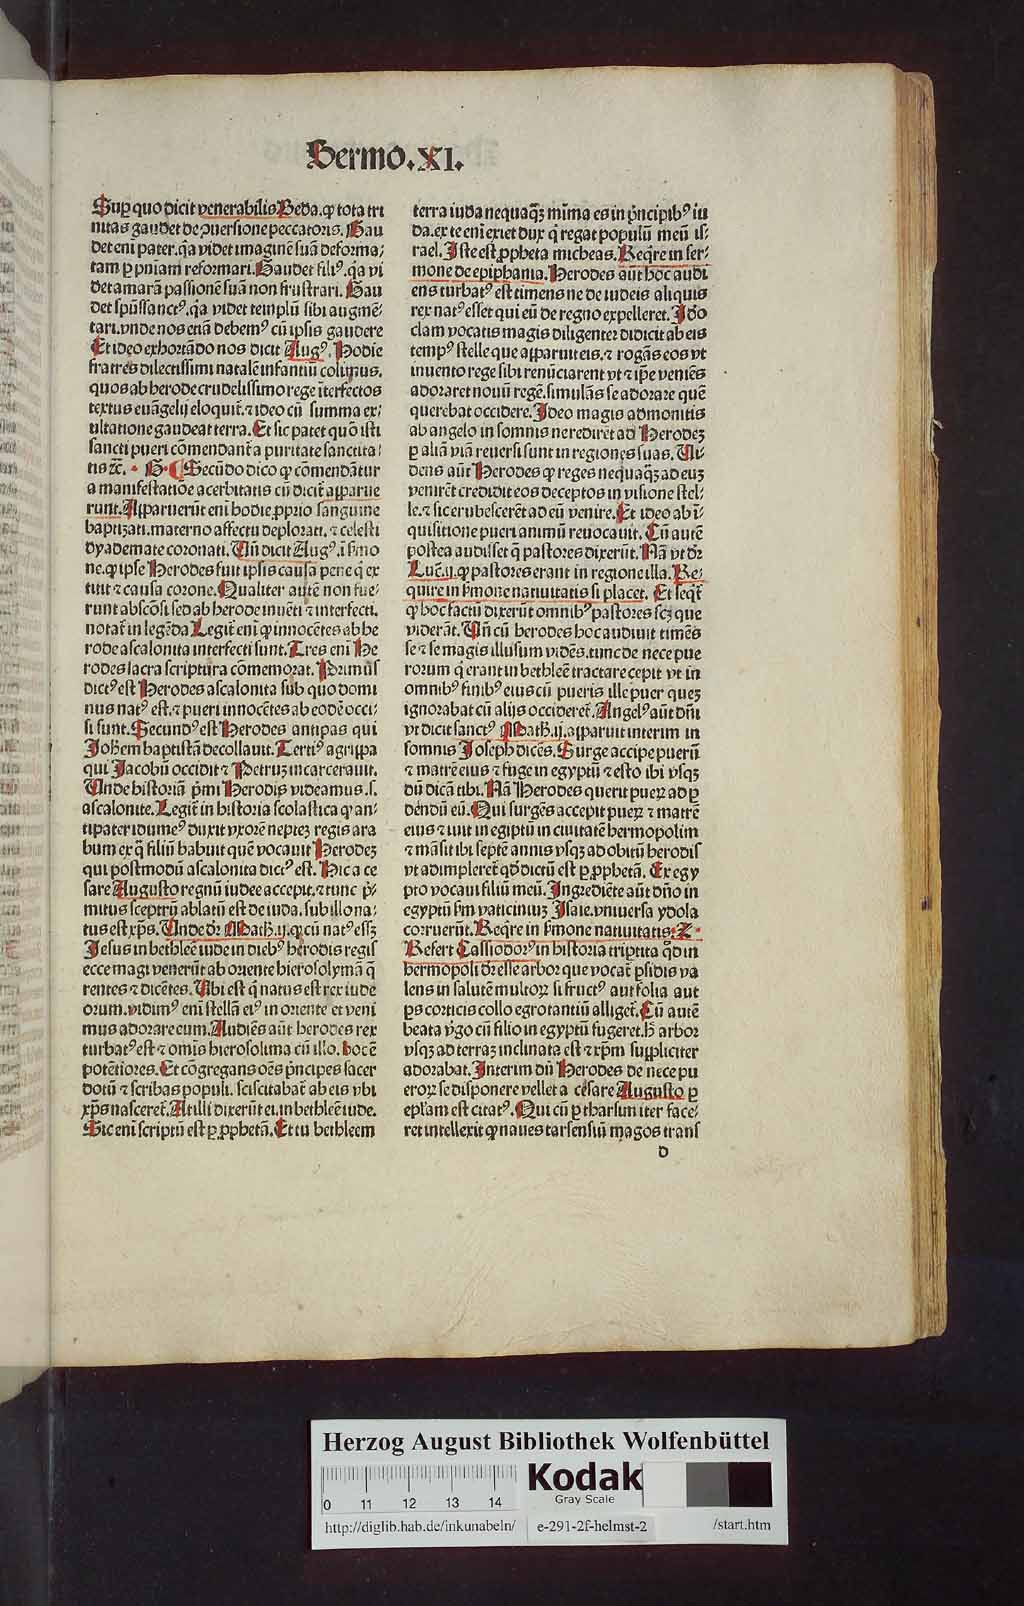 Sermo.XI.
Sup̱ quo dicit venerabilis Beda.ꝙ tota tri
nitas gaudet de ↄuersione peccatoris. Gau
det eni pater.q̃a videt imaginẽ suã deforma⸗
tam ꝑ pniam reformari. Gaudet filiꝰ.q̃a vi
det amarã passionẽ suã non frustrari. Gau
det spũssanctꝰ.q̃a videt templũ sibi augmẽ⸗
tari. vnde nos etiã debemꝰ cũ ipsis gaudere
Et ideo exhortãdo nos dicit Augꝰ. Hodie
fratres dilectissimi natalẽ infantiũ colimus.
quos ab herode crudelissimo rege ĩterfectos
textus euãgelij eloquit̃.⁊ ideo cũ summa ex⸗
ultatione gaudeat terra. Et sic patet quõ isti
sancti pueri cõmendant̃ a puritate sanctita⸗
tis ⁊c̃. G. Secũdo dico ꝙ cõmendãtur
a manifestatiõe acerbitatis cũ dicit̃ apparue
runt. Apparuerũt eni hodie proprio sanguine
baptizati.materno affectu deplorati.⁊ celesti
dyademate coronati. Uñ dicit Augꝰ.ĩ sermo
ne.ꝙ ipse Herodes fuit ipsis causa pene q̃ ex
titit ⁊ causa corone. Qualiter autẽ non fue⸗
runt abscõsi sed ab herode inuẽti ⁊ interfecti.
notat̃ in legẽda Legit̃ eni ꝙ innocẽtes ab he
rode ascalonita interfecti sunt. Tres eni He
rodes sacra scriptura cõmemorat. Primus
dictꝰ est Herodes ascalonita sub quo domi
nus natꝰ est.⁊ pueri innocẽtes ab eodẽ occi⸗
si sunt. Secundꝰ est Herodes antipas qui
Johẽm baptistã decollauit. Tertiꝰ agrippa
qui Jacobũ occidit ⁊ Petruz incarcerauit.
Unde historiã pͥmi Herodis videamus.s.
ascalonite. Legit̃ in historia scolastica ꝙ an⸗
tipater idumeꝰ duxit vxorẽ neptez regis ara
bum ex q̃ filiũ habuit quẽ vocauit Herodez
qui postmodũ ascalonita dictꝰ est. Hic a ce
sare Augusto regnũ iudee accepit.⁊ tunc pͥ⸗
mitus sceptrũ ablatũ est de iuda. sub illo na⸗
tus est xp̃s. Unde dr̃ Math̃.ij.ꝙ cũ natꝰ eẽt
Jesus in bethleẽ iude in diebꝰ herodis regis
ecce magi venerũt ab oriente hierosolymã q̃
rentes ⁊ dicẽtes. Ubi est q̃ natus est rex iude
orum. vidimꝰ eni stellã eiꝰ in oriente et veni
mus adorare eum. Audiẽs aũt herodes rex
turbatꝰ est ⁊ omĩs hierosolima cũ illo. hoc ẽ
potẽtiores. Et cõgregans oẽs pͥncipes sacer
dotũ ⁊ scribas populi. sciscitabat̃ ab eis vbi
xp̃s nasceret̃. At illi dixerũt ei.in bethleẽ iude.
Sic eni scriptũ est ꝑ prophetã. Et tu bethleem
terra iuda nequaq̃ȝ mĩma es in pͥncipibꝰ iu
da.ex te eni exiet dux q̃ regat populũ meũ is⸗
rael. Iste est propheta micheas. Reqͥre in ser⸗
mone de epiphania. Herodes aũt hoc audi
ens turbatꝰ est timens ne de iudeis aliquis
rex natꝰ esset qui eũ de regno expelleret. Ido
clam vocatis magis diligenter didicit ab eis
tempꝰ stelle que apparuit eis.⁊ rogãs eos vt
inuento rege sibi renũciarent vt ⁊ ip̃e veniẽs
adoraret nouũ regẽ. simulãs se adorare quẽ
querebat occidere. Ideo magis admonitis
ab angelo in somnis ne redirẽt ad Herodeȝ
ꝑ aliã viã reuersi sunt in regiones suas. Ui⸗
dens aũt Herodes ꝙ reges nequaq̃ȝ ad euȝ
venirẽt credidit eos deceptos in visione stel⸗
le.⁊ sic erubescerẽt ad eũ venire. Et ideo ab ĩ⸗
quisitione pueri animũ reuocauit. Cũ autẽ
postea audisset q̃ pastores dixerũt. Nã vt dr̃
Luc̃.ij.ꝙ pastores erant in regione illa. Re⸗
quire in sermone natiuitatis si placet. Et seqͥt̃
ꝙ hoc factũ dixerũt omnibꝰ pastores scȝ que
viderãt. Uñ cũ herodes hoc audiuit timẽs
se ⁊ se magis illusum vidẽs. tunc de nece pue
rorum q̃ erant in bethleẽ tractare cepit vt in
omnibꝰ finibꝰ eius cũ pueris ille puer queȝ
ignorabat cũ alijs occideret̃. Angelꝰ aũt dñi
vt dicit sanctꝰ Math̃.ij. apparuit interim in
somnis Joseph dicẽs. Surge accipe puerũ
⁊ matrẽ eius ⁊ fuge in egyptũ ⁊ esto ibi vsqȝ
dũ dicã tibi. Nã Herodes querit pueꝝ ad ꝑ
dẽndũ eũ. Qui surgẽs accepit pueꝝ ⁊ matrẽ
eius ⁊ iuit in egiptũ in ciuitatẽ hermopolim
⁊ mãsit ibi septẽ annis vsqȝ ad obitũ herodis
vt adimpleret̃ qd̃ dictũ est ꝑ prophetã. Ex egy
pto vocaui filiũ meũ. Ingrediẽte aũt dño in
egyptũ ẜm vaticiniuȝ Isaie.vniuersa ydola
corruerũt. Reqͥre in sermone natiuitatis. Z.
Refert Cassiodorꝰ in historia triptita q̃d in
hermopoli dr̃ esse arbor que vocat̃ ꝑsidis va
lens in salutẽ multoꝝ si fructꝰ aut folia aut
ꝑs corticis collo egrotantiũ alliget̃. Cũ autẽ
beata v̓go cũ filio in egyptũ fugeret.h̃ arbor
vsqȝ ad terraȝ inclinata est ⁊ xp̃m suppliciter
adorabat. Interim dũ Herodes de nece pu
eroꝝ se disponere vellet a cesare Augusto ꝑ
epl̃am est citatꝰ. Qui cũ ꝑ tharsum iter face⸗
ret intellexit ꝙ naues tarsensiũ magos trans
d
Herzog August Bibliothek Wolfenbüttel
0 11 12 13 14
Kodak
Gray Scale
http://diglib.hab.de/inkunabeln/ e-291-2f-helmst-2 /start.htm